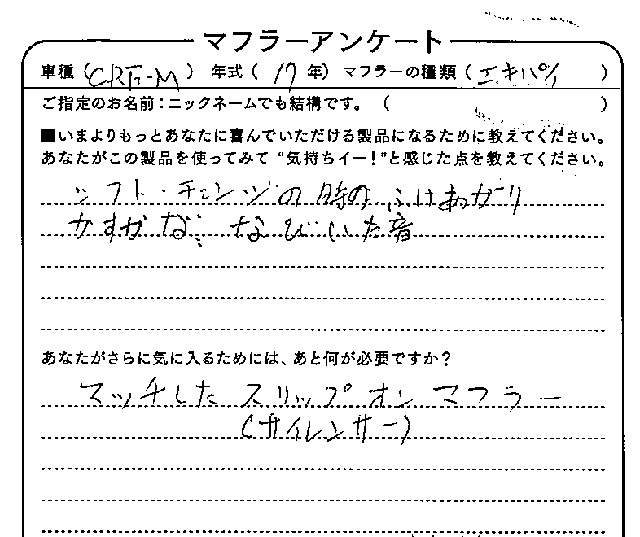 マフラーアンケート
車種（CRF-M）年式（17年）マフラーの種類（エキパイ）
ご指定のお名前：ニックネームでも結構です。（　　）
■いまよりもっとあなたに喜んでいただける製品になるために教えてください。
あなたがこの製品を使ってみて“気持ちイー！”と感じた点を教えてください。
シフト・チェンジの時のふけあがり
かすかな、なびいた音
あなたがさらに気に入るためには、あと何が必要ですか？
マッチしたスリップオンマフラー
（サイレンサー）